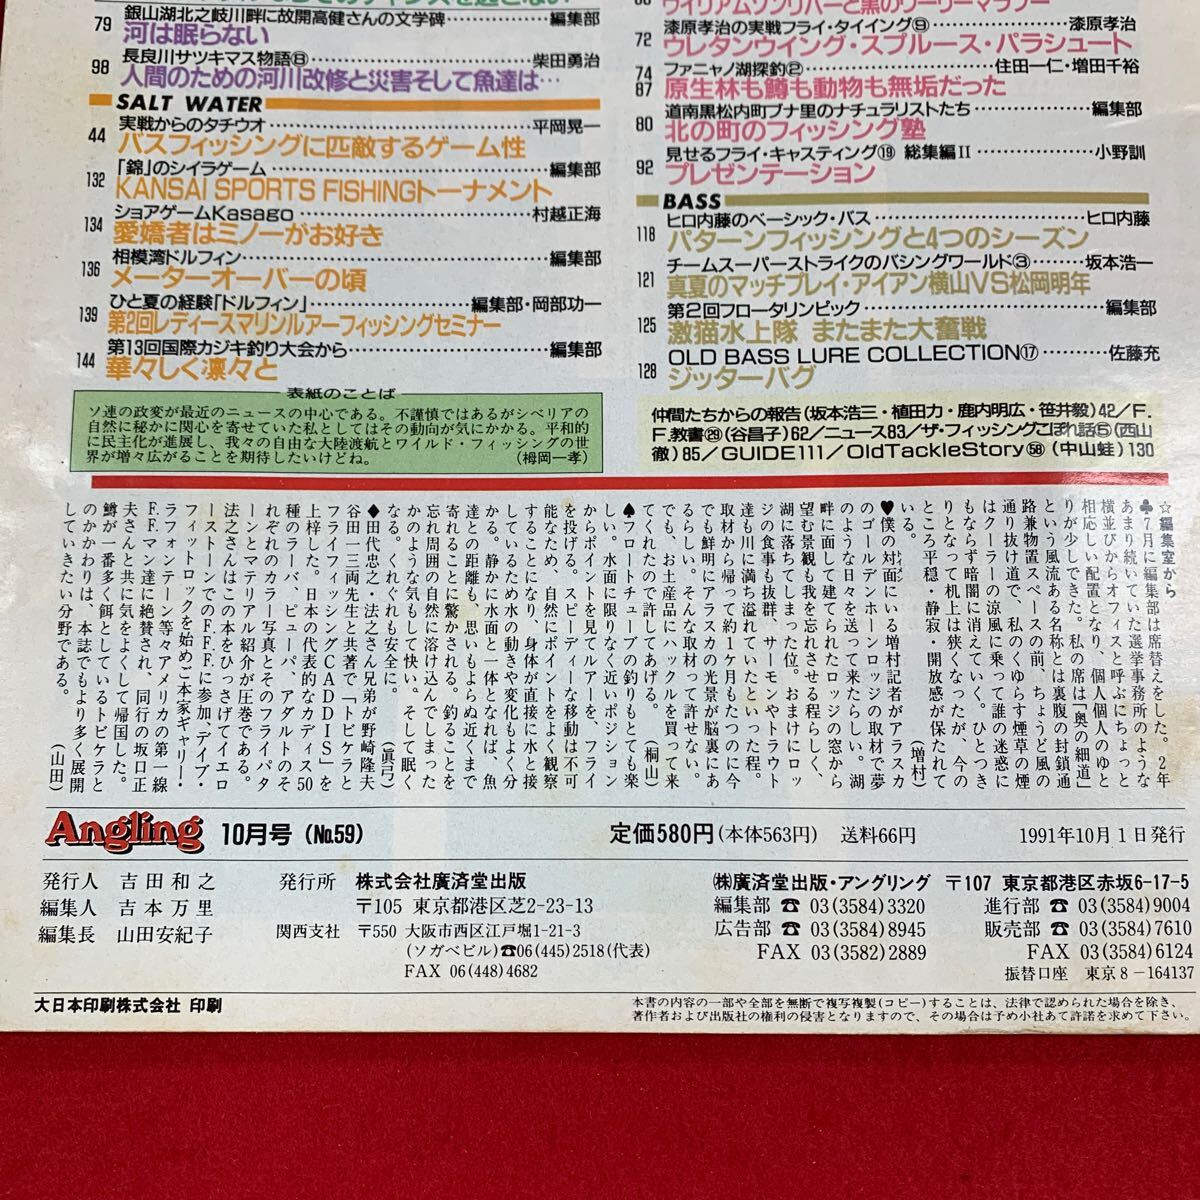 79 銀山湖北之岐川畔に故開高健さんの文学碑……編集部
河は眠らない
98 長良川サツキマス物語⑧……柴田勇治
人間のための河川改修と災害そして魚達は…
SALT WATER
44 実戦からのタチウオ……平岡晃一
バスフィッシングに匹敵するゲーム性
132 「錦」のシイラゲーム……編集部
KANSAI SPORTS FISHINGトーナメント
134 ショアゲームKasago……村越正海
愛嬌者はミノーがお好き
136 相模湾ドルフィン……編集部
メーターオーバーの頃
139 ひと夏の経験「ドルフィン」……編集部・岡部功一
第2回レディースマリンルアーフィッシングセミナー
144 第13回国際カジキ釣り大会から……編集部
華々しく凛々と
表紙のことば
ソ連の政変が最近のニュースの中心である。不謹慎ではあるがシベリアの
自然に秘かに関心を寄せていた私としてはその動向が気にかかる。平和的
に民主化が進展し、我々の自由な大陸渡航とワイルド・フィッシングの世
界が増々広がることを期待したいけどね。 (栂岡一孝)
ウィリアムソンリバーと黒のウーリーマラブー
72 漆原孝治の実戦フライ・タイイング⑨……漆原孝治
ウレタンウイング・スプルース・パラシュート
74 87 ファニャノ湖探釣②……住田一仁・増田千裕
原生林も鱒も動物も無垢だった
80 道南黒松内町ブナ里のナチュラリストたち……編集部
北の町のフィッシング塾
92 見せるフライ・キャスティング⑲ 総集編II……小野訓
プレゼンテーション
BASS
118 ヒロ内藤のベーシック・バス……ヒロ内藤
パターンフィッシングと4つのシーズン
121 チームスーパーストライクのバシングワールド③……坂本浩一
真夏のマッチプレイ・アイアン横山VS松岡明年
125 第2回フロータリンピック……編集部
激猫水上隊 またまた大奮戦
128 OLD BASS LURE COLLECTION⑰……佐藤充
ジッターバグ
仲間たちからの報告(坂本浩三・植田力・鹿内明広・笹井毅)42/F.
F.教書㉙(谷昌子)62/ニュース83/ザ・フィッシングこぼれ話⑤(西山
徹)85/GUIDE111/OldTackleStory㊽(中山蛙)130
☆編集室から
♣7月に編集部は席替えをした。2年
あまり続いていた選挙事務所のような
横並びからオフィスと呼ぶにちょっと
相応しい配置となり、個人個人のゆと
りが少しできた。私の席は「奥の細道」
という風流ある名称とは裏腹の封鎖通
路兼物置スペースの前、ちょうど風の
通り抜け道で、私のくゆらす煙草の煙
はクーラーの涼風に乗って誰の迷惑に
もならず暗闇に消えていく。ひとつき
りとなって机上は狭くなったが、今の
ところ平穏・静寂・開放感が保たれて
いる。 (増村)
♥僕の対面にいる増村記者がアラスカ
のゴールデンホーンロッジの取材で夢
のような日々を送って来たらしい。湖
畔に面して建てられたロッジの窓から
望む景観も我を忘れさせる程らしく、
湖に落ちてしまった位。おまけにロッ
ジの食事も抜群、サーモンやトラウト
達も川に満ち溢れていたという程。
取材から帰って約1ケ月もたつのに今
でも鮮明にアラスカの光景が脳裏にあ
るらしい。そんな取材って許せない。
でも、お土産品にハックルを買って来
てくれたので許してあげる。(桐山)
♠フロートチューブの釣りもとても楽
しい。水面に限りなく近いポジション
からポイントを見てルアーを、フライ
を投げる。スピーディーな移動は不可
能なため、自然にポイントをよく観察
することになり、身体が直接に水と接
しているため水の動きや変化もよく分
かる。静かに水面と一体となれば、魚
達との距離も、思いもよらぬ近くまで
寄れることに驚かされる。釣ることを
忘れ周囲の自然に溶け込んでしまった
かのような気もして快い。そして眠く
なる。くれぐれも安全に。(眞弓)
♦田代忠之・法之さん兄弟が野崎隆夫
谷田一三両先生と共著で「トビケラと
フライフィッシングCADDIS」を
上梓した。日本の代表的なカディス50
種のラーバ、ピューパ、アダルトのそ
れぞれのカラー写真とそのフライパタ
ーンとマテリアル紹介が圧巻である。
法之さんはこの本をひっさげてイエロ
ーストーンでのF.F.F.に参加、デイブ・
フィットロックを始めご本家ギャリー・
ラフォンテーン等々アメリカの第一線
F.F.マン達に絶賛され、同行の坂口正
夫さんと共に気をよくして帰国した。
鱒が一番多く餌としているトビケラと
のかかわりは、本誌でもより多く展開
していきたい分野である。 (山田)
Angling 10月号(No.59) 定価580円(本体563円) 送料66円 1991年10月1日発行
発行人 吉田和之
編集人 吉本万里
編集長 山田安紀子
発行所 株式会社廣済堂出版
〒105 東京都港区芝2-23-13
関西支社 〒550 大阪市西区江戸堀1-21-3
(ソガベビル)☎06(445)2518(代表)
FAX 06(448)4682
㈱廣済堂出版・アングリング 〒107 東京都港区赤坂6-17-5
編集部 ☎ 03(3584)3320 進行部 ☎ 03(3584)9004
広告部 ☎ 03(3584)8945 販売部 ☎ 03(3584)7610
FAX 03(3582)2889 FAX 03(3584)6124
振替口座 東京8-164137
大日本印刷株式会社 印刷
本書の内容の一部や全部を無断で複写複製(コピー)することは、法律で認められた場合を除き、
著作者および出版社の権利の侵害となりますので、その場合は予め小社あて許諾を求めて下さい。